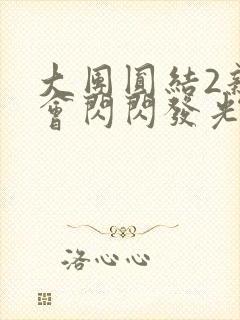 大團圓結2
會閃閃發光
洛心心